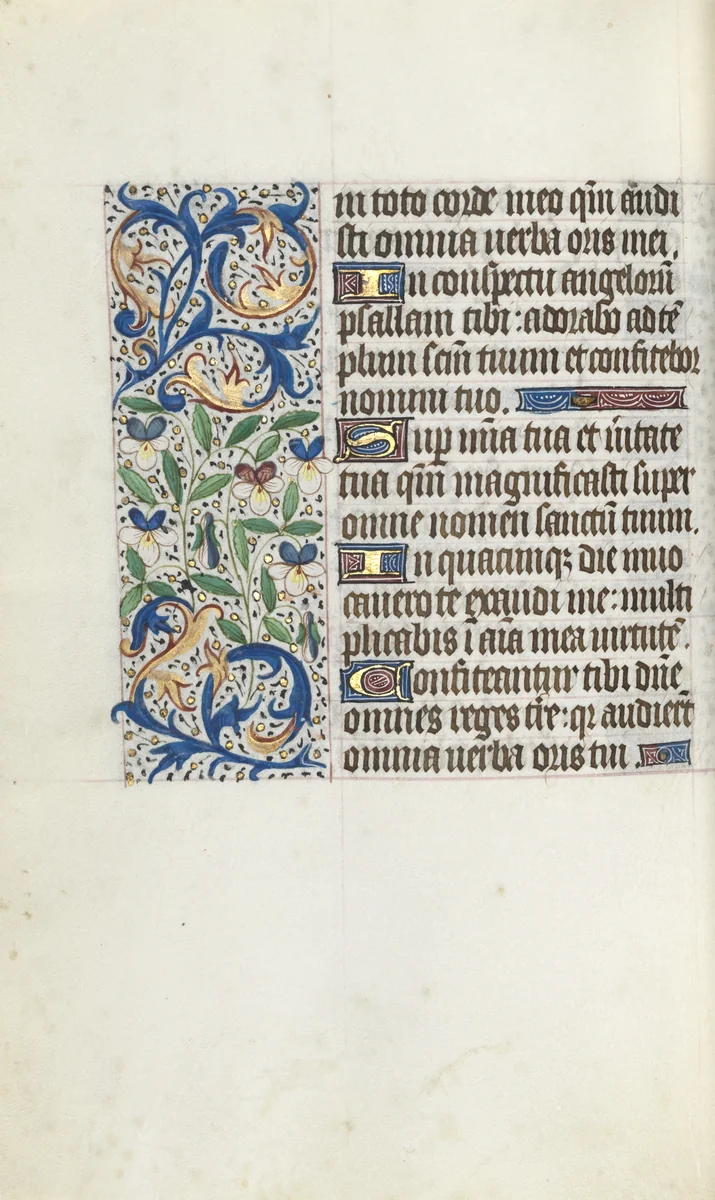 in toto corde meo qm̄ audi
sti omnia uerba oris mei.
In conspectu angeloru᷒
psallam tibi: adorabo ad tē
plum scm̄ tuum et confitebor
nomini tuo.
Sup mīa tua et ūitate
tua qm̄ magnificasti super
omne nomen sanctū tuum.
In quacumqꝫ die inuo
cauero te exaudi me: multi
plicabis ī aīa mea uirtutē.
Confiteantur tibi dn̄e
omnes reges tr̄e: qꝛ audierūt
omnia uerba oris tui.